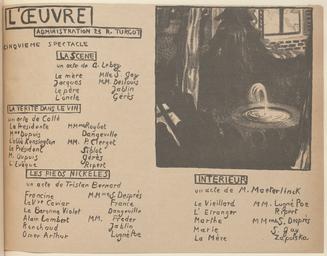 L'ŒUVRE
ADMINISTRATION 23 R. TURGOT
CINQUIEME SPECTACLE
LA SCENE
un acte de A. Lebey
La mère Mlle S. Gay
Jacques MM. Deslouis
Le père Jablin
L'oncle Gérès
LA VERITE DANS LE VIN
un acte de Collé
La Presidente MMmes Roubet
Mme Dupuis Dangeville
L'abbé Kensington MM. P. Clerget
Le Président Siblot
M. Dupuis Gérès
L'Evêque Ripert
LES PIEDS NICKELÉS
un acte de Tristan Bernard
Francine MMmes S. Desprès
La Vve Caviar France
La Baronne Violet Dangeville
Alain Lambert MM.
Renchaud Jablin
Omer Arthur Lugné Poe
INTERIEUR
un acte de M. Maeterlinck
Le Vieillard MM. Lugné Poe
L'Etranger Ripert
Marthe MMmes S. Desprès
Marie S. Gay
La Mère Zapolska